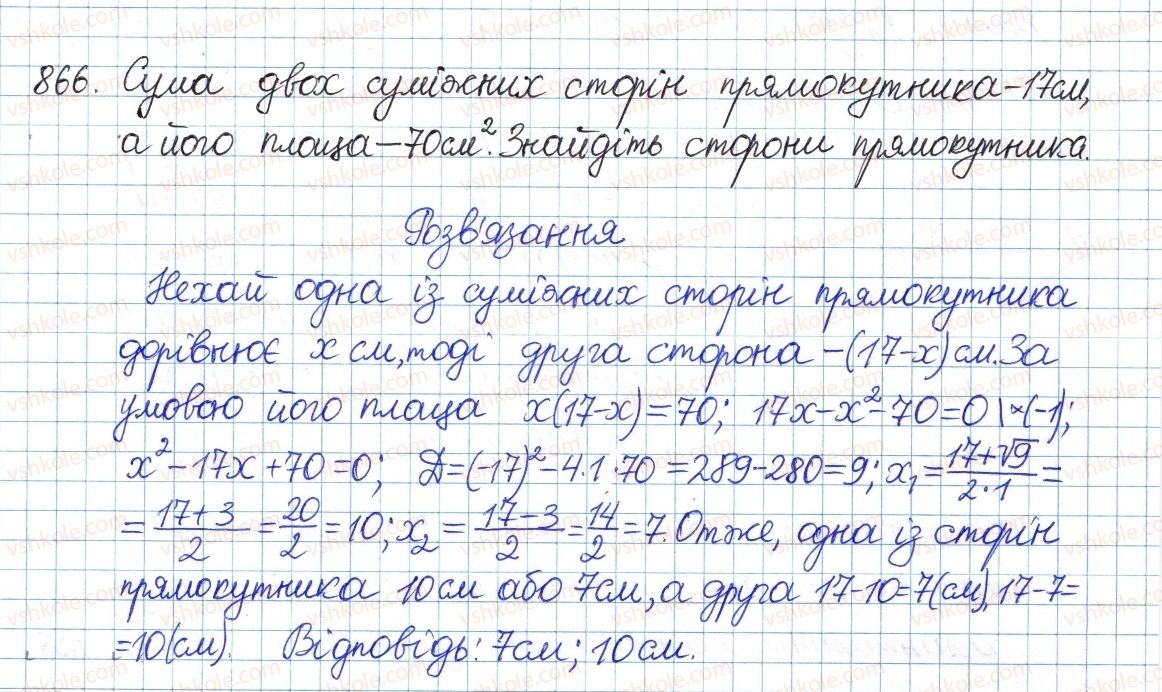 866. Сума двох суміжних сторін прямокутника - 17см,
а його площа - 70см². Знайдіть сторони прямокутника.
Розв'язання
Нехай одна із суміжних сторін прямокутника
дорівнює x см, тоді друга сторона - (17-x) см. За
умовою його площа x(17-x)=70; 17x-x²-70=0 |×(-1);
x²-17x+70=0; Д=(-17)²-4·1·70=289-280=9; x₁=(17+√9)/(2·1)=
=(17+3)/2=20/2=10; x₂=(17-3)/2=14/2=7. Отже, одна із сторін
прямокутника 10см або 7см, а друга 17-10=7(см), 17-7=
=10(см). Відповідь: 7см; 10см.